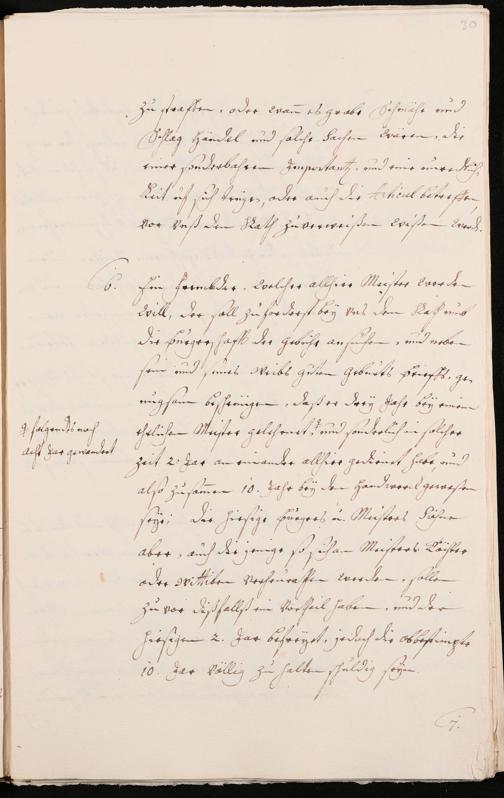 30
zu straffen, oder wann es grobe Schmäh und
Schlag Händel und solche Sachen wären, die
einer sonderbahren Importantz, und eine unredlich-
keit uf sich trügen, oder auch die Articul betreffen,
vor unß den Rath zu verweißen wißen werd.
6. Ein frembder, welcher allhier Meister werden
will, der soll zu forderst bey uns dem Rath umb
die Burgerschafft der gebühr ansuchen, und neben
sein und seines Weibs guten Geburts Brieffs, ge-
nugsam bescheinigen, daß er drey Jahr bey einem
ehrlichen Meister gelehrnet, und sonderlich in solcher
zeit 2. Jar an einander allhier gedienet habe und
also zusammen 10. Jahr bey dem Handwerck gewesen
seye; die hiesige Burgers u. Meisters Söhne
aber, auch die jenige so sich an Meisters Töchter
oder Wittiben verheuraten werden, sollen
zu vor dißfallß ein Vortheil haben, und der
hiesigen 2. Jar befreyet, jedoch die obbestimpte
10. Jar völlig zu halten schuldig seyn.
folgendts noch
acht Jar gewandert
7.